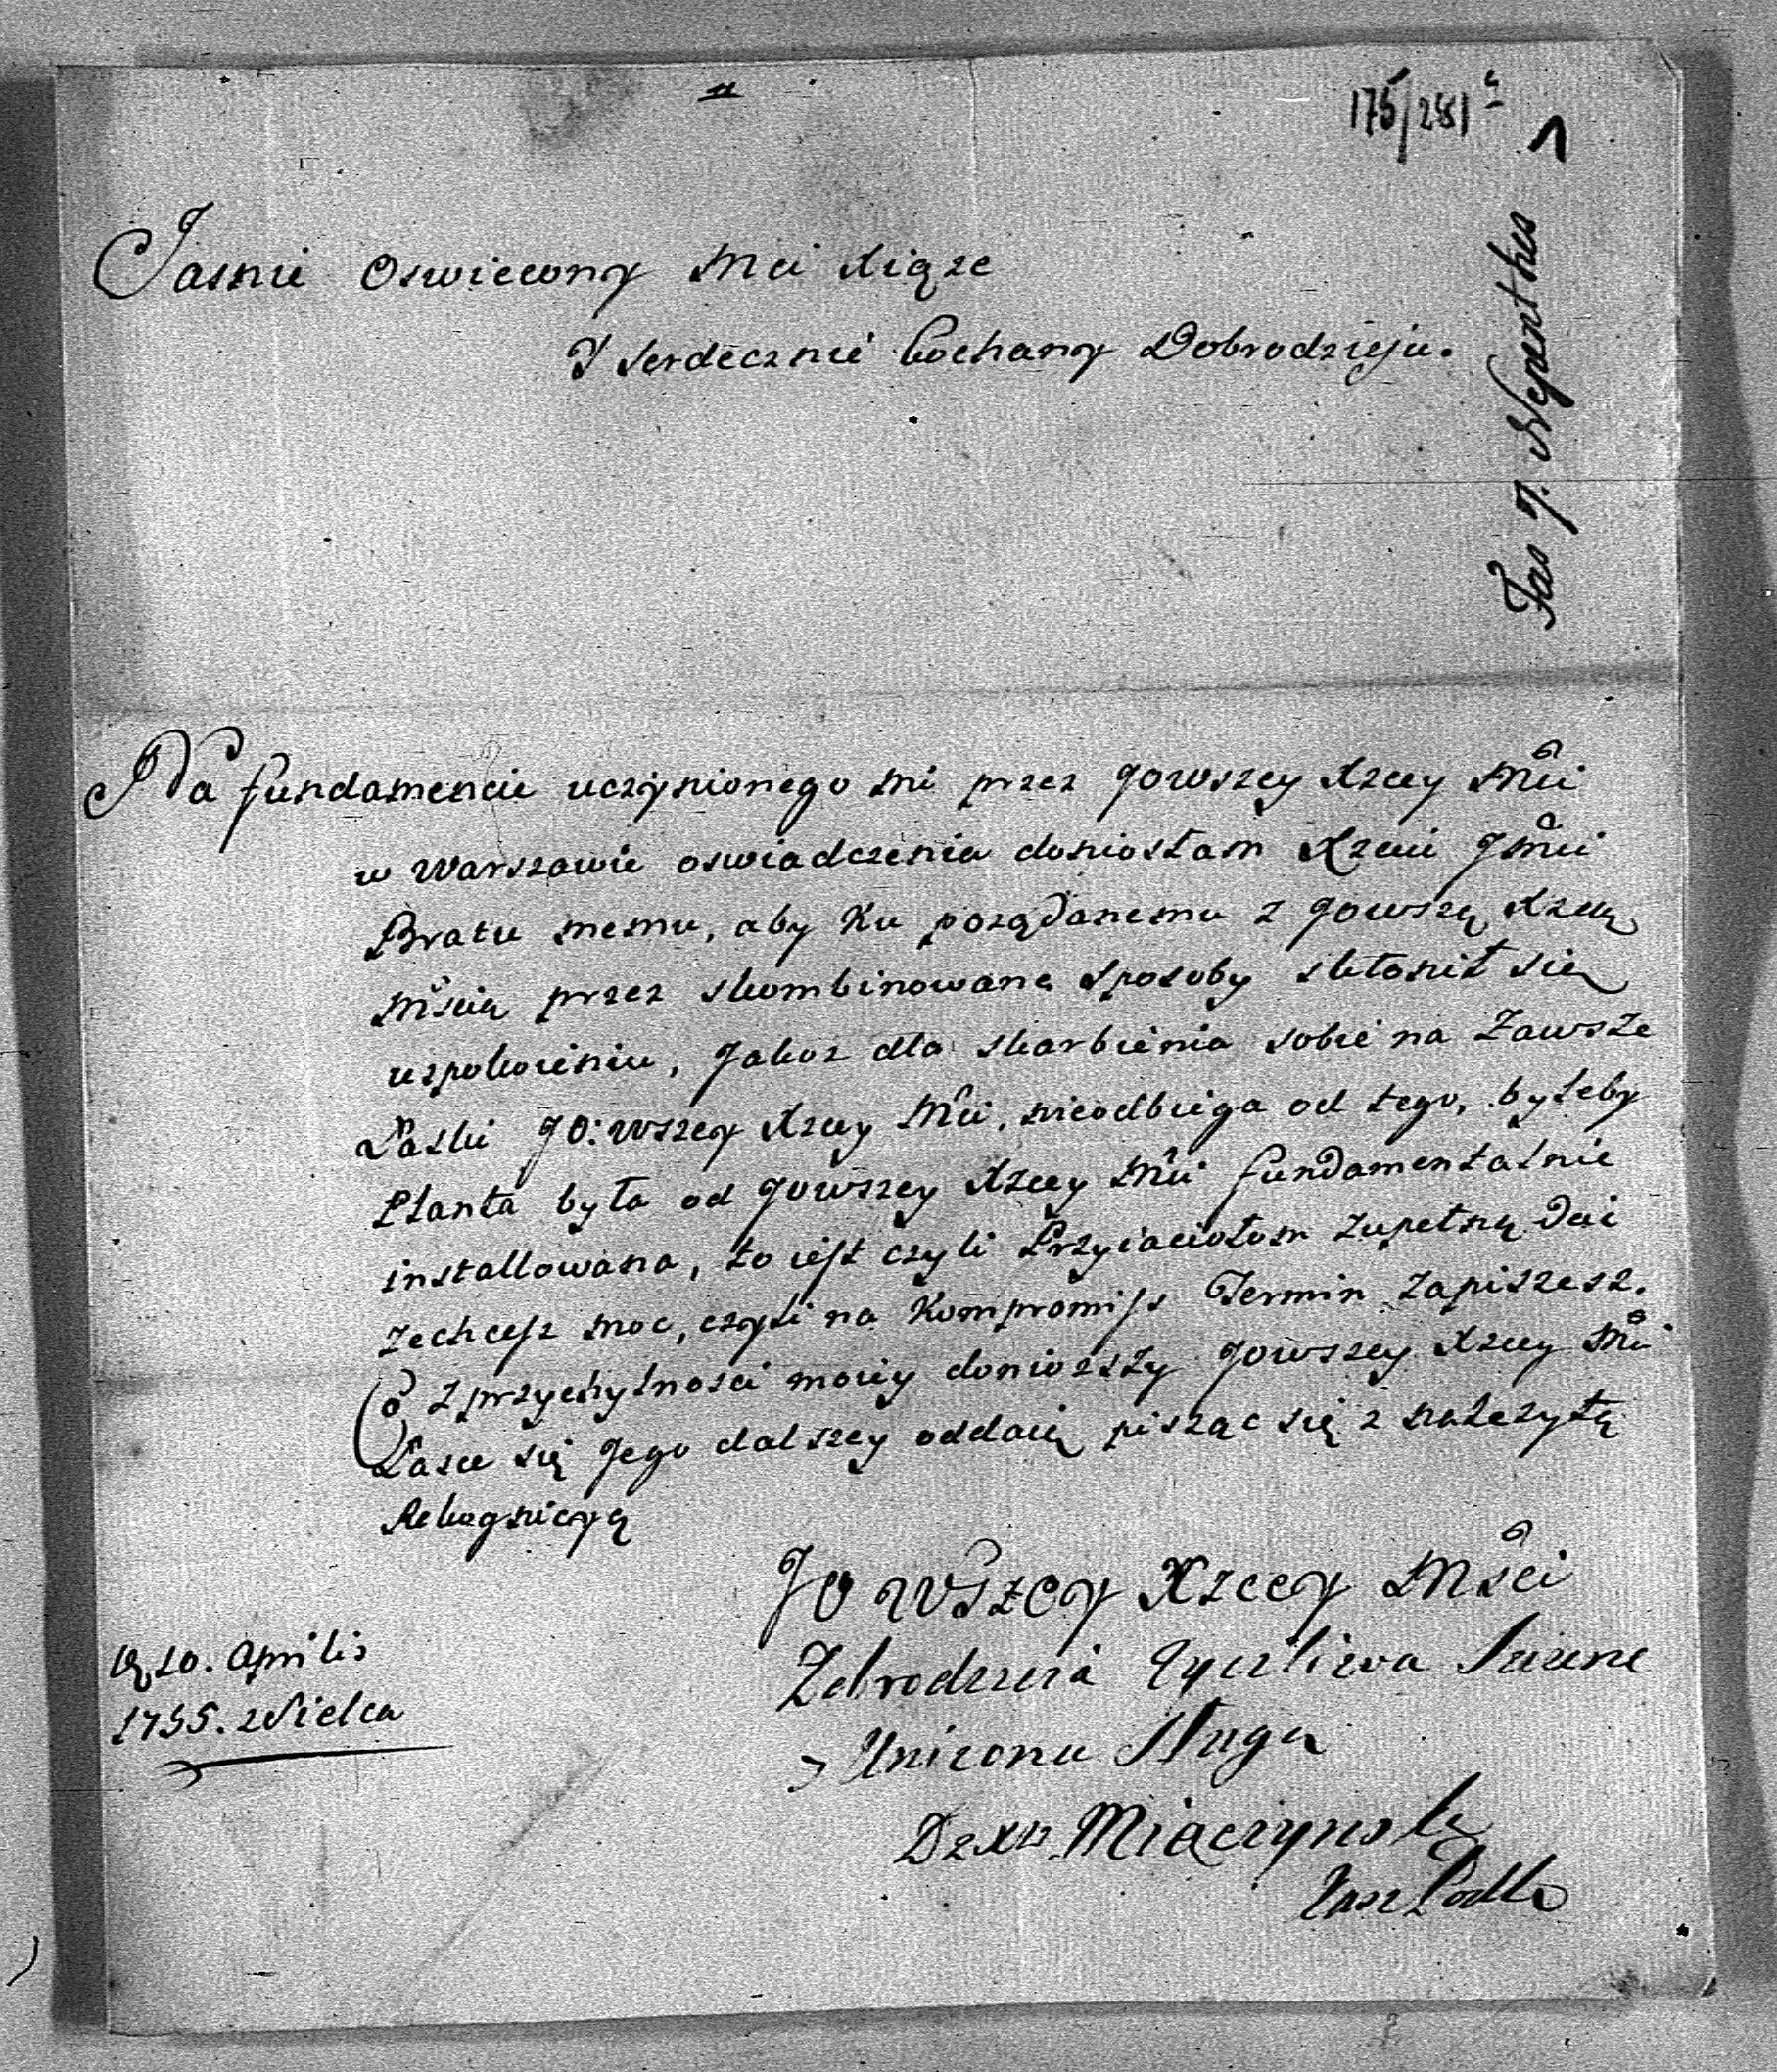 175/281
Fas 7. Nepenthes
Jasnie Oswiecony Mci Xiąze
Y serdecznie kochany Dobrodzieju.
Na fundamencie uczynionego mi przez Jowszey Xzcey Mci
w Warszawie oswiadczenia doniosłam Xzciu Jmci
Bratu memu, aby ku pożądanemu z Jowszą Xzcą
Mścią przez skombinowane sposoby skłonił się
uspokoieniu, Jakoz dla skarbienia sobie na Zawsze
Łaski JO: wszey Xzcey Mci, nieodbiega od tego, byleby
Planta była od Jowszey Xzcey Mci fundamentalnie
installowana, to iest czyli Przyiaciołom zupełną dać
zechcesz moc, czyli na Kompromiss Termin zapiszesz.
Co z przychylności moiey doniozszy Jowszey Xzcey Mci
Łasce się Jego dalszey oddaię pisząc się z należytą
Rekognicyą
JO wszey Xzcey Mści
Dobrodzieia życzliwa
Unizona Sługa
Miączynska
10. Aprilis
1755. z Sielca